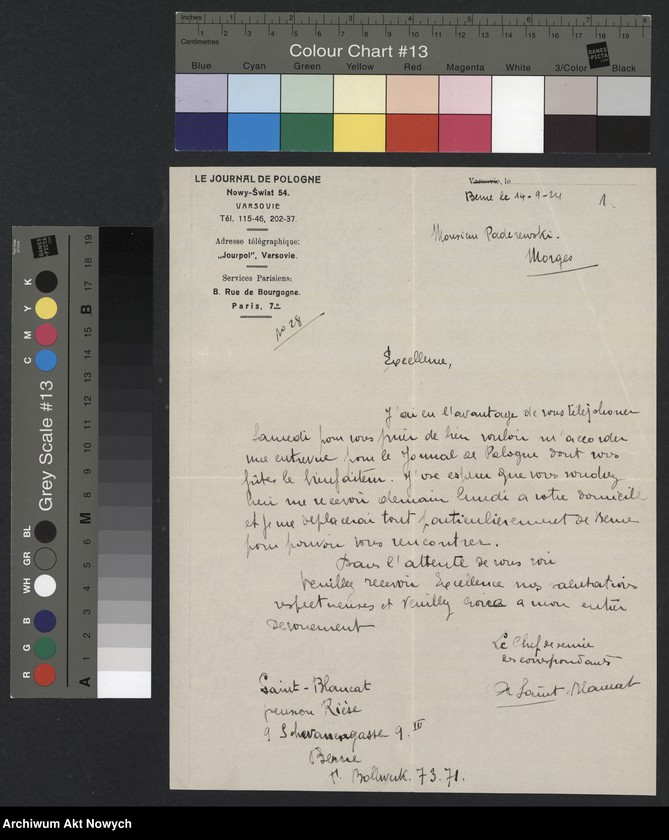 Inches 1 2 3 4 5 6 7 8
Centimetres 1 2 3 4 5 6 7 8 9 10 11 12 13 14 15 16 17 18 19
Colour Chart #13
DANES PICTA
Blue Cyan Green Yellow Red Magenta White 3/Color Black
LE JOURNAL DE POLOGNE
Nowy-Świat 54.
VARSOVIE
Tél. 115-46, 202-37.
Adresse télégraphique:
„Jourpol", Varsovie.
Services Parisiens:
8. Rue de Bourgogne.
Paris, 7e
No 28
Varsovie, le
Berne le 14-9-24
1.
Monsieur Paderewski.
Morges
Excellence,
J'ai eu l'avantage de vous téléphoner
Samedi pour vous prier de bien vouloir m'accorder
une entrevue pour le Journal de Pologne dont vous
fûtes le bienfaiteur. J'ose espérer que vous voudrez
bien me recevoir demain lundi a votre domicile
et je me deplacerai tout particulierement de Berne
pour pouvoir vous rencontrer.
Dans l'attente de vous voir
Veuillez recevoir Excellence nos salutations
respectueuses et veuillez croire a mon entier
devouement
Le Chef de service
des correspondants
Saint-Blancat
Saint-Blancat
pension Riese
9 Schwanengasse 9. III
Berne
t. Bollwerk. 73.71.
Grey Scale #13
DANES PICTA
C M Y K
R G B WH GR BL
A 1 2 3 4 5 6 M 8 9 10 11 12 13 14 15 B 17 18 19
Archiwum Akt Nowych